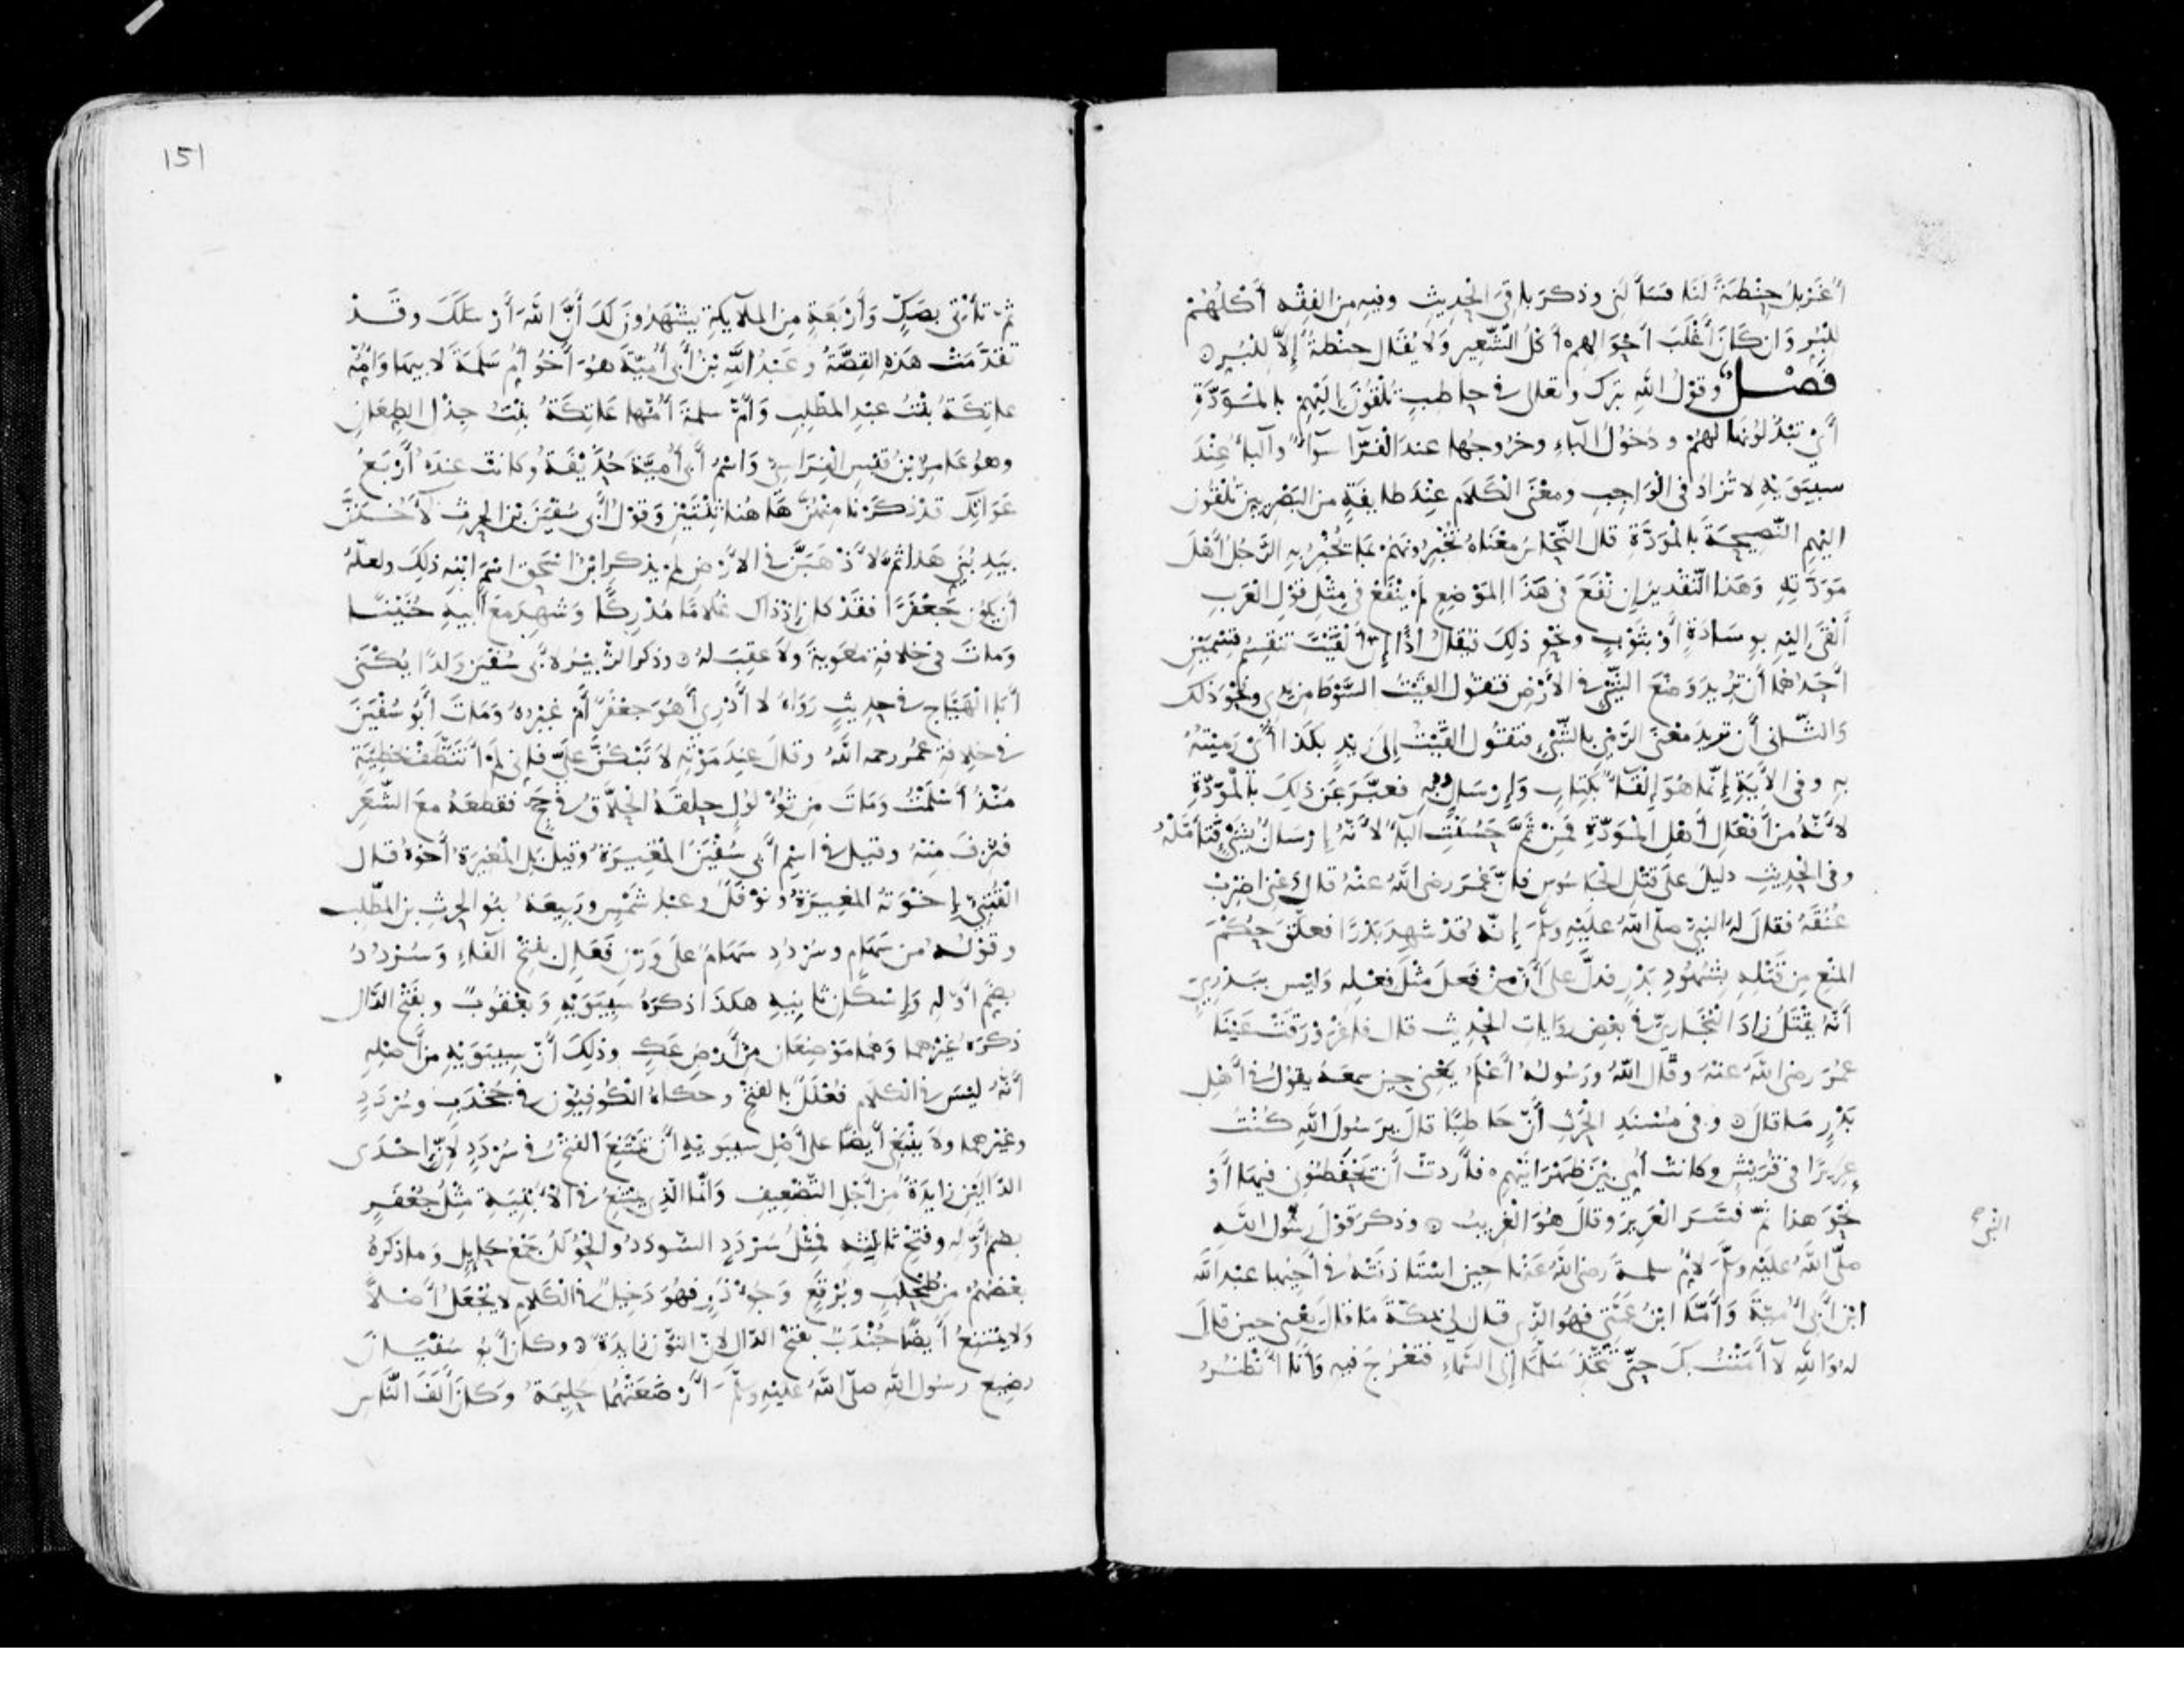 أُغَرْبِلُ حِنْطَةً لَنَا فَسَأَلَنِي وذكر باقِيَ الحديثِ وفيهِ مِن الفِقْهِ أَكْلُهُمْ
لِلْبُرِّ وَإن كَانَ أَغْلَبَ أحْوَالِهِم أكْلُ الشَّعِيرِ وَلا يُقَال حِنْطَةٌ إِلاّ لِلْبُرِّ ۞
فَصْل وقوْلُ اللَّهِ تبرَك وتعلى في حاطبٍ تُلْقُونَ إِلَيْهِمْ بِالمَوَدَّةِ
أَيْ تَبْذُلُونَهَا لهُمْ ودُخُولُ الباءِ وخرُوجُها عندَ الفَرّاءِ سَوآءٌ وآلبآءُ عِنْدَ
سيبَوَيْهِ لا تُزادُ في الْوَاجِبِ ومعْنَى الْكَلَام عِنْدَ طايفَةٍ من البَصْرِيين تُلْقُون
اليْهِم النّصِيحَةَ بِالْمَوَدَّةِ قال النّحّاس مَعْنَاهُ تُخْبِرُونَهُمْ بمَا يُخْبِرُ بِهِ الرَّجُلُ أهْلَ
مَوَدَّتِهِ وَهَذا التّقْديرُ إن نَفَعَ في هَذَا المَوْضِعِ لم يَنْفَعْ في مِثْلِ قوْلِ الْعَرَبِ
ألْقَى إليْهِ بوِسَادَةٍ أوْ بِثَوْبٍ ونحْوِ ذلِكَ فيُقالُ إذًا إِنّ ألْقَيْتَ تنقسِمُ قِسْمَيْنِ
أحَدُهُما أن تُرِيدَ وَضْعَ الشَّيْءِ في الأرْضِ فتقُول ألقَيْتُ السَّوْطَ من يدي ونحْوَ ذَلك
وَالثّاني أن تريدَ معْنَى الرَّمْيِ بِالشَّيْءِ فتقُول ألقَيْتُ إلى زَيْدٍ بكَذا أَيْ رَمَيْتُهُ
بِهِ وفى الآيَةِ إنّمَا هُوَ إلْقآءٌ بكِتابٍ وَإرْسَالٌ بِهِ فعبَّرَ عَن ذلِكَ بِالْمَوَدّةِ
لأنّهُ مِن أفْعَالِ أهْلِ المَوَدّةِ فَمِنْ ثَمَّ حَسُنَتِ آلبآءُ لأنَّهُ إرْسَالٌ بِشَيْءٍ فَتَأَمَّلْهُ
وفى الحديثِ دليلٌ على قتْلِ الجَاسُوسِ فإنّ عُمَرَ رضى اللَّهُ عنْهُ قال دَعْني أضرِبْ
عُنُقَهُ فقالَ لهُ النبيّ صلّى اللَّهُ عليْهِ وسلّمَ إنّهُ قدْ شهِدَ بَدْرًا فعلّقَ حُكْمَ
المَنْعِ مِن قَتْلِهِ بِشُهُودِ بَدْرٍ فدلّ على أنّ مَنْ فَعلَ مِثْلَ فِعْلِهِ وَليْس ببَدْرِيٍّ
أنّهُ يُقْتَلُ زادَ الْبُخَارِيّ في بعْضِ رِوَايَاتِ الحديثِ قال فاغْرَوْرَقَتْ عَيْنَا
عمَرَ رضى اللَّهُ عنْهُ وقَال اللَّهُ ورَسُولُهُ أعْلَمُ يَعْني حِينَ سمِعَهُ يقولُ في أهْلِ
بَدْرٍ مَا قَالَ ۞ وفى مُسْنَدِ الحَرثِ أنّ حَاطِبًا قالَ يرَسُولَ اللَّهِ كُنْتُ
عَرِيرًا في قُرَيْشٍ وكانتْ أُمّي بيْنَ ظَهْرَانَيْهِم فأَرَدتُ أن يَحْفَظُوني فيهَا أوْ
نحْوَ هذا ثُمّ فسّرَ الْعَرِيرَ وقالَ هُوَ الْغَرِيبُ ۞ وذكر قوْلَ رسُول اللَّه
صلّى اللَّهُ عليْهِ وسلّمَ لأُمّ سلمةَ رضى اللَّهُ عَنْها حِين اسْتَأذنَتْهُ في أخِيهَا عبدِ اللَّهِ
ابْن أبي أُميّةَ وَأمّا ابْنُ عَمّتِي فهُوَ الذّي قال لي بمكّةَ مَا قالَ يَعْني حِين قالَ
لهُ وَاللَّهِ لا آمَنْتُ بكَ حتّى تَتّخِذَ سُلّمًا إلى السَّمَاءِ فتَعْرُجَ فيهِ وَأنَا أنْظُرُ
151
ثمّ تأتي بصَكٍّ وَأرْبَعَةٍ مِن الملآيكةِ يَشْهَدُونَ لَكَ أنَّ اللَّهَ أرْسَلَكَ وقَدْ
تقَدّمَتْ هَذِهِ القِصّةُ وعَبْدُ اللَّهِ بْنُ أبي أُميّةَ هُوَ أخُو أُمِّ سَلَمَةَ لأبيهَا وَأُمُّهُ
عاتِكَةُ بنْتُ عبْدِ المطّلِبِ وَأُمّ سلمةَ أُمّها عَاتِكَةُ بنْتُ جِذْلِ الطِعَانِ
وهوَ عَامِرُ بْنُ قيْسٍ الفِرَاسِيّ وَاسْمُ أبي أُميّةَ حُذَيْفَةُ وكانتْ عندَهُ أرْبَعُ
عَوَاتِك قد ذكَرْنا منْهُنّ هَا هُنا ثِنْتَيْنِ وَقوْلُ أبي سُفْيَنَ بْنِ الحرثِ لآخُذَنَّ
بيَدِ بُنَيّ هَذا ثمّ لأذْهَبَنَّ في الأرْضِ لم يذكر ابْنُ اسْحَقَ اسْمَ ابْنِهِ ذلِكَ ولعلّهُ
أن يَكُونَ جَعْفَرًا فقَدْ كان إذْ ذاكَ غُلامًا مُدْرِكًا وَشهِدَ مَعَ أبيهِ حُنَيْنًا
وَماتَ في خلافةِ مُعَوِيةَ ولا عَقِبَ لهُ ۞ وذكر الزّبيْرُ لأبي سُفْيَنَ وَلدًا يُكْنَى
أبا الْهَيّاج في حديثٍ رَوَاهُ لا أدْرِي أهُوَ جعْفَرٌ أمْ غيْرُهُ وَمَاتَ أبُو سُفْيَنَ
في خلافةِ عمَرَ رحمه اللَّهُ وقالَ عِندَ مَوْتِهِ لا تَبْكُنَّ عليّ فإنّي لمْ أتَنَطّفْ بخَطِيَّةٍ
مُنْذُ أسْلَمْتُ وَماتَ مِن ثُؤْلُولٍ حلقَهُ الحَلاَّقُ في حَجٍّ فقطَعَهُ معَ الشّعَرِ
فنُزِفَ مِنْهُ وقيل في اسْمِ أبي سُفْيَنَ الْمُغِيرَةُ وقِيلَ بَلِ الْمُغِيرَةُ أخوهُ قال
القُتَبِيّ إخْوَتُهُ المغِيرَةُ ونَوْفَلٌ وعبْدُ شَمْسٍ ورَبِيعَةُ بنُو الحرثِ بن المطّلِب
وقوْلُهُ من سَهَامٍ وسُرْدُدِ سَهَامٌ علَى وَزْنِ فَعَالٍ بفَتْحِ الفاءِ وَسُرْدُدُ
بضَمِّ أوّلِهِ وَإِسْكَانِ ثانِيهِ هكَذَا ذكَرَهُ سِيبَوَيْهِ وَيَعْقُوبُ وبِفَتْحِ الدَّالِ
ذكَرَهُ غَيْرُهما وَهُما مَوْضِعَان مِنْ أرْضِ عَكٍّ وذلِكَ أنّ سِيبَوَيْهِ مِنْ أصْلِهِ
أنّهُ ليْسَ في الْكلَامِ فُعْلَلٌ بالفَتْحِ وحكاهُ الْكُوفِيّون في جُخْدَبٍ وسُرْدَدٍ
وغيْرِهِما ولا ينْبَغِي أيضًا على أصْلِ سيبويْهِ أن يَمْتَنِعَ الفَتْحُ في سُرْدَدٍ لأنّ إحْدَى
الدّاليْنِ زايدَةٌ مِن أجْلِ التّضْعِيفِ وَإنّما الّذِي يمتَنِعُ في الأبْنِيَةِ مِثْلُ جُعْفَرٍ
بضمّ أوّلهِ وفَتْحِ ثالِثِهِ فمِثْلُ سُرْدَدٍ السُّودَدُ والحُوَّلَلُ جَمْعُ حَايِلٍ وَما ذكرَهُ
بعْضُهُمْ مِن طُحْلَبٍ وبُرْقَعٍ وَجُؤْذَرٍ فهُوَ دَخِيلٌ في الْكلَامِ لا يُجْعَلُ أصْلاً
وَلا يمْتَنِعُ أيضًا جُنْدَبٌ بفَتْحِ الدّالِ لأنّ النّونَ زايدَةٌ ۞ وكانَ أبُو سُفْيَانَ
رضِيعَ رسُولِ اللَّهِ صلّى اللَّهُ عليْهِ وسلّمَ أرْضَعَتْهُمَا حَلِيمَةُ وَكَانَ آلَفَ النَّاسِ